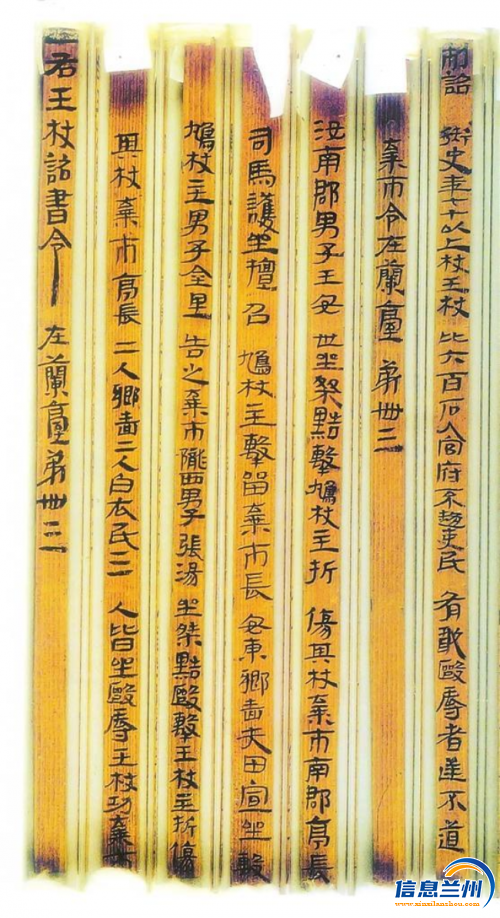 制詔 御史年七十以上杖王杖 比六百石入官府不趨吏民 有敢毆辱者逆不道
棄市令在蘭臺 第卌三
汝南郡男子王安 世坐桀黠擊鳩杖主折 傷其杖棄市南郡亭長
司馬護坐擅召 鳩杖主擊留棄市長 安東鄉嗇夫田宣坐毄
鳩杖主男子金里 告之棄市隴西男子張湯 坐桀黠毆擊王杖主折傷
其杖棄市亭長 二人鄉嗇二人白衣民三 人皆坐毆辱王杖功棄市
右王杖詔書令 在蘭臺第卌三
信息兰州
www.xinxilanzhou.com